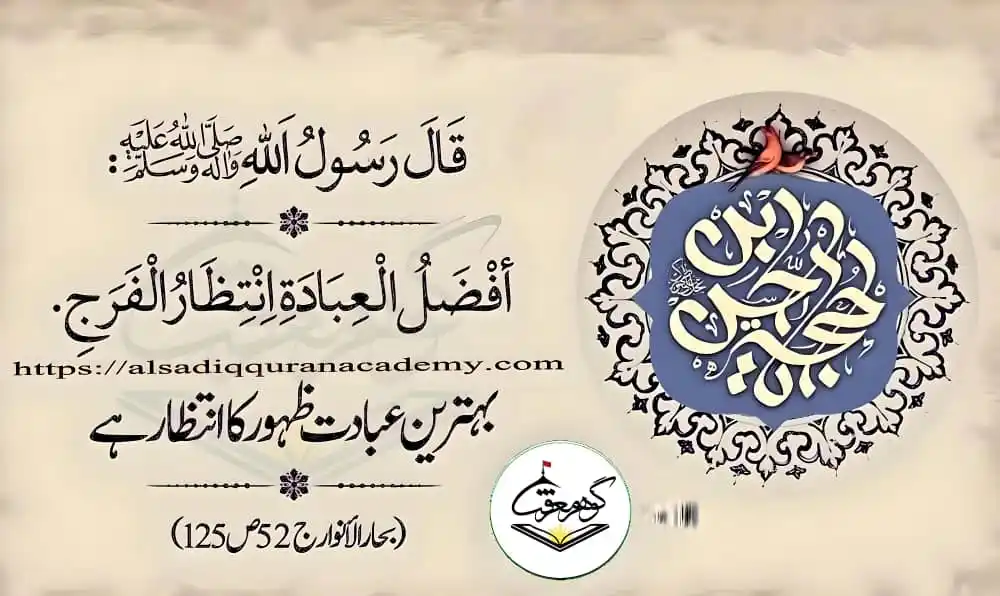 قَالَ رَسُولُ اَللهِ صَلَّى اللهُ عَلَيْهِ وَآلِهِ وَسَلَّمَ:
أفْضَلُ الْعِبَادَةِ اِنْتِظَارُ الْفَرَجِ.
https://alsadiqquranacademy.com
بہترین عبادت ظہور کا انتظار ہے
(بحار الأنوار ج 52 ص 125)
گوہر معرفت
الحجة ابن الحسن